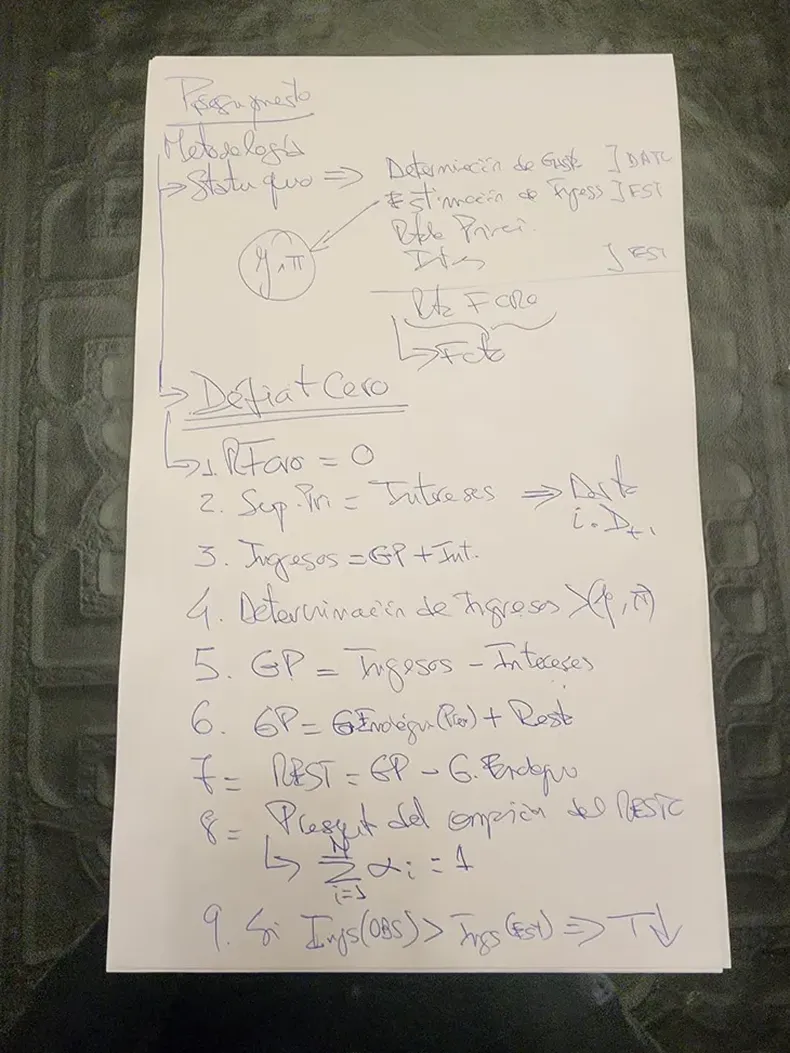 Presupuesto
Metodología
→ Statu quo ⇒ Determinación de Gasto ] DATO
Estimación de Ingresos ] EST
Rtdo Primei.
y, π
Int ] EST
Rtdo FCRO
↳ Fcto
→ Déficit Cero
↳ 1. RFcro = 0
2. Sup. Pri = Intereses ⇒
i. D t-1
3. Ingresos = GP + Int.
4. Determinación de Ingresos (y, π)
5. GP = Ingresos - Intereses
6. GP = G Endógeno + Resto
7 = REST = GP - G. Endógeno
8 = Presupuest del del RESTO
↳ N Σ i=1 αi = 1
9. Si Ings (OBS) > Ings (EST) ⇒ T↓